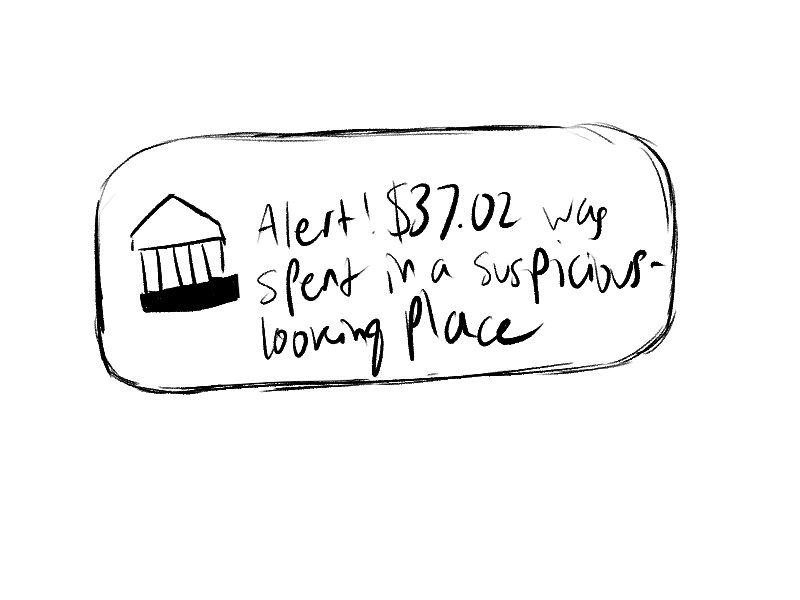 Alert! $37.02 was
spent in a suspicious-
looking place